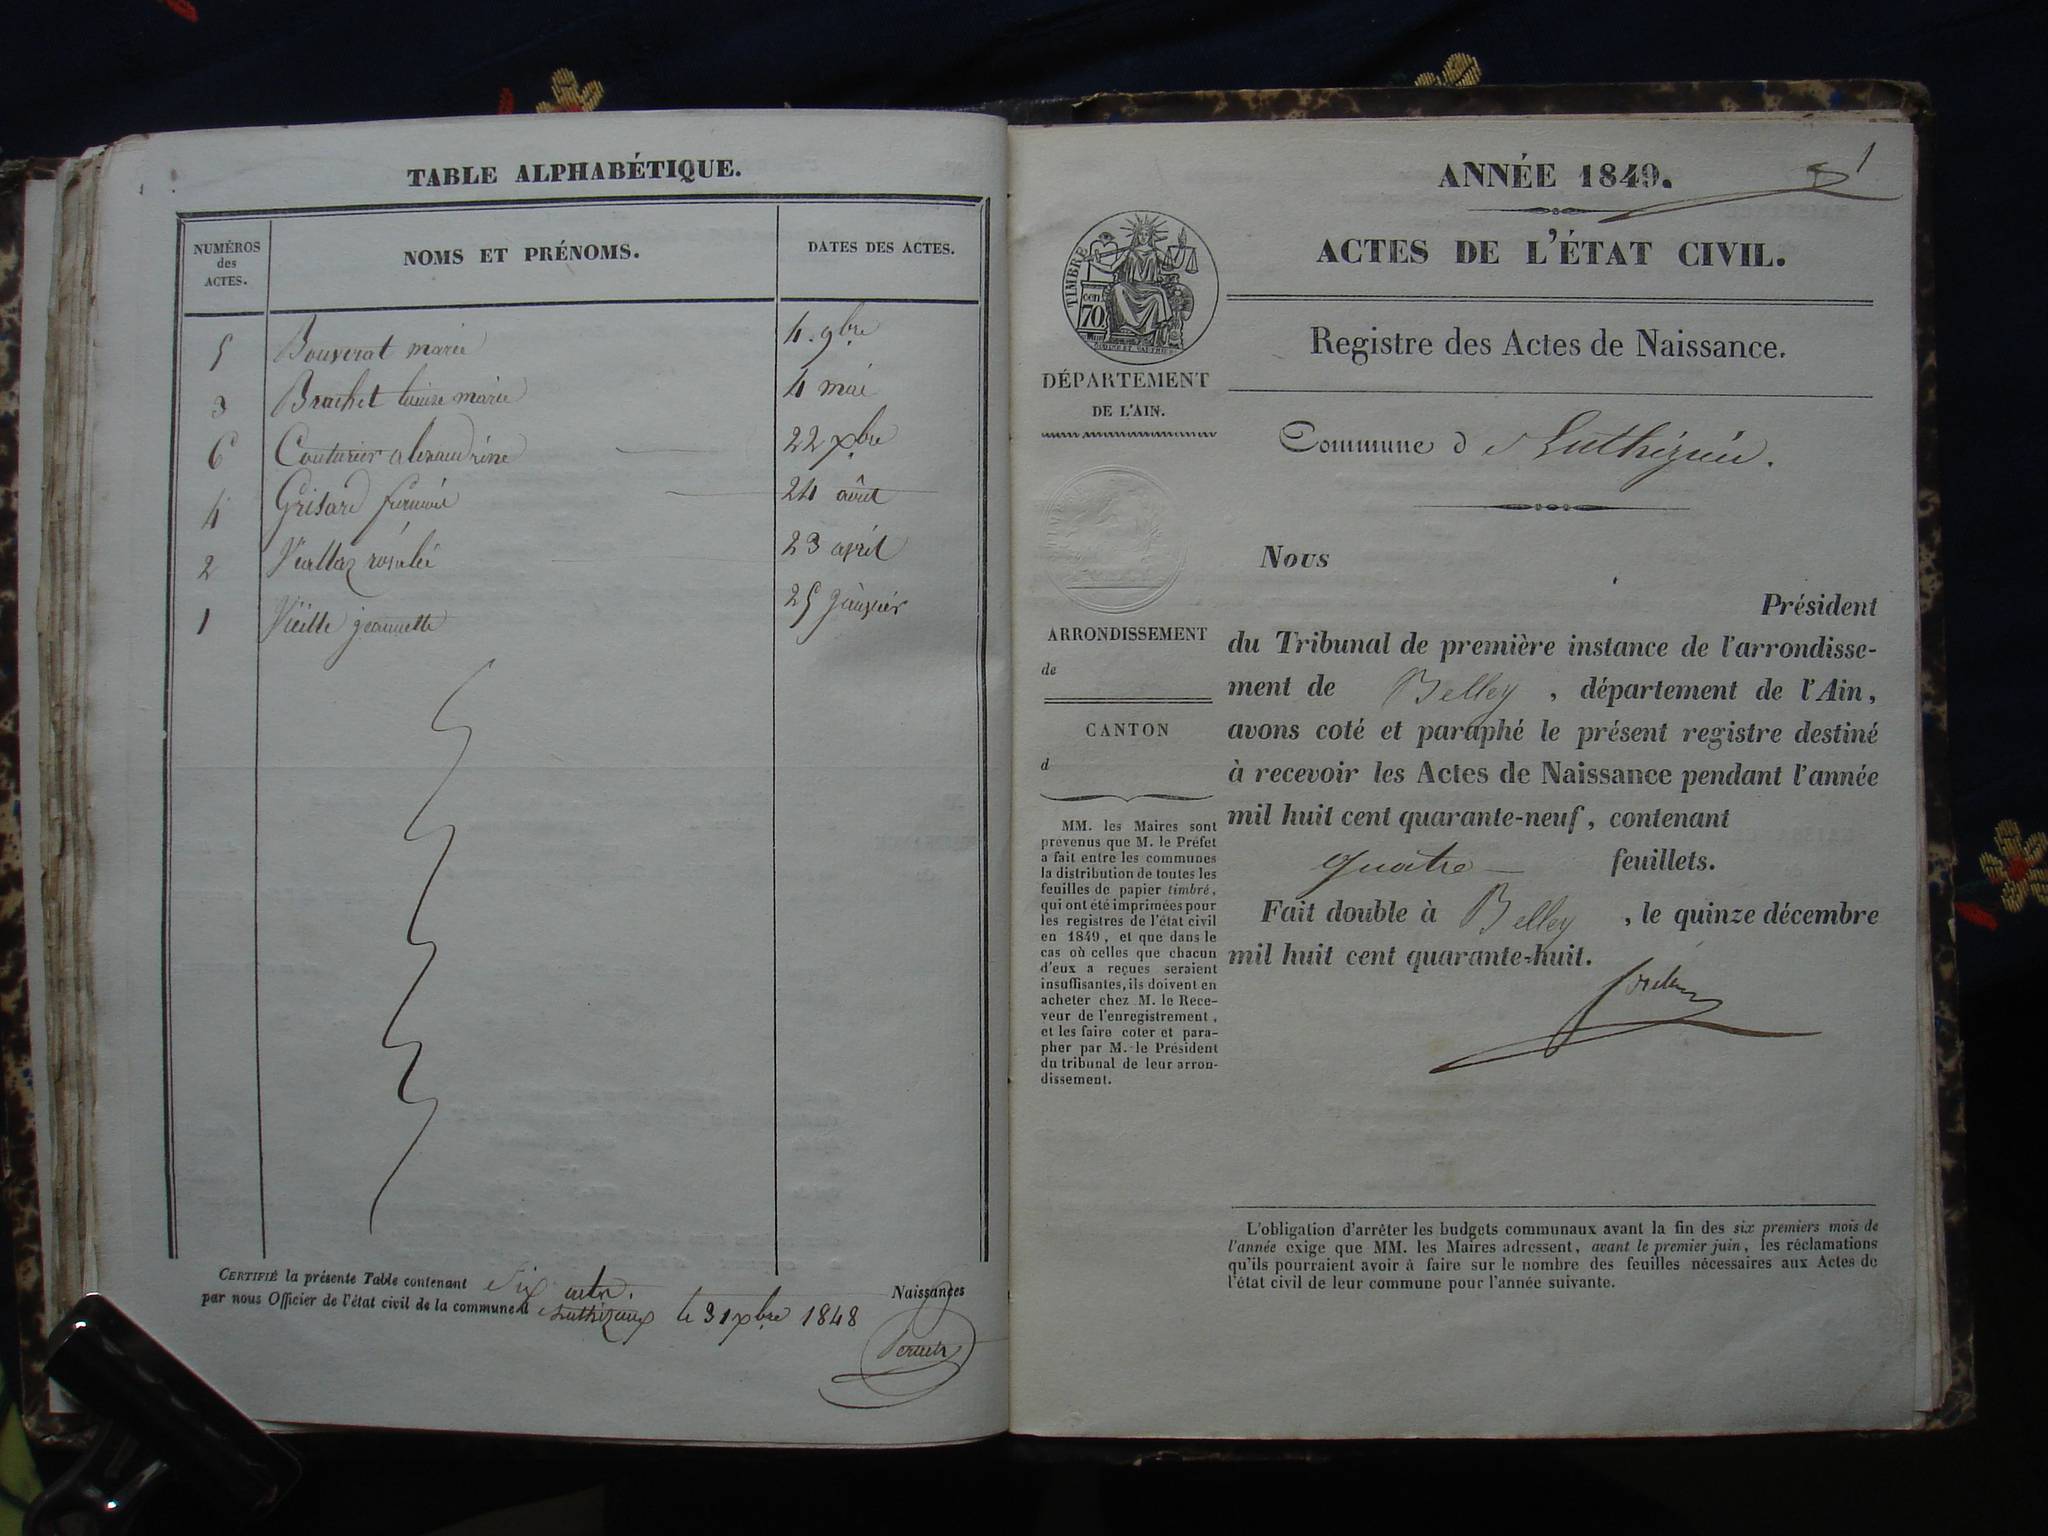 TABLE ALPHABÉTIQUE.
NUMÉROS des ACTES.
NOMS ET PRÉNOMS.
DATES DES ACTES.
5 Bouverat marie 4 . 9bre
3 Brachet louise marie 4 mai
6 Couturier alexandrine 22 xbre
4 Grisard 24 août
2 Viallaz rosalie 23 avril
1 Vieille jeannette 25 janvier
CERTIFIÉ la présente Table contenant Six actes. Naissances
par nous Officier de l'état civil de la commune d Luthézieux le 31 xbre 1848
1
ANNÉE 1849.
ACTES DE L'ÉTAT CIVIL.
Registre des Actes de Naissance.
TIMBRE
70 cen
DÉPARTEMENT
DE L'AIN.
ARRONDISSEMENT
de
CANTON
d
MM. les Maires sont
prévenus que M. le Préfet
a fait entre les communes
la distribution de toutes les
feuilles de papier timbré,
qui ont été imprimées pour
les registres de l'état civil
en 1849, et que dans le
cas où celles que chacun
d'eux a reçues seraient
insuffisantes, ils doivent en
acheter chez M. le Rece-
veur de l'enregistrement,
et les faire coter et para-
pher par M. le Président
du tribunal de leur arron-
dissement.
Commune d e Luthézieu.
Nous
Président
du Tribunal de première instance de l'arrondisse-
ment de Belley, département de l'Ain,
avons coté et paraphé le présent registre destiné
à recevoir les Actes de Naissance pendant l'année
mil huit cent quarante-neuf, contenant
quatre feuillets.
Fait double à Belley, le quinze décembre
mil huit cent quarante-huit.
L'obligation d'arrêter les budgets communaux avant la fin des six premiers mois de
l'année exige que MM. les Maires adressent, avant le premier juin, les réclamations
qu'ils pourraient avoir à faire sur le nombre des feuilles nécessaires aux Actes de
l'état civil de leur commune pour l'année suivante.